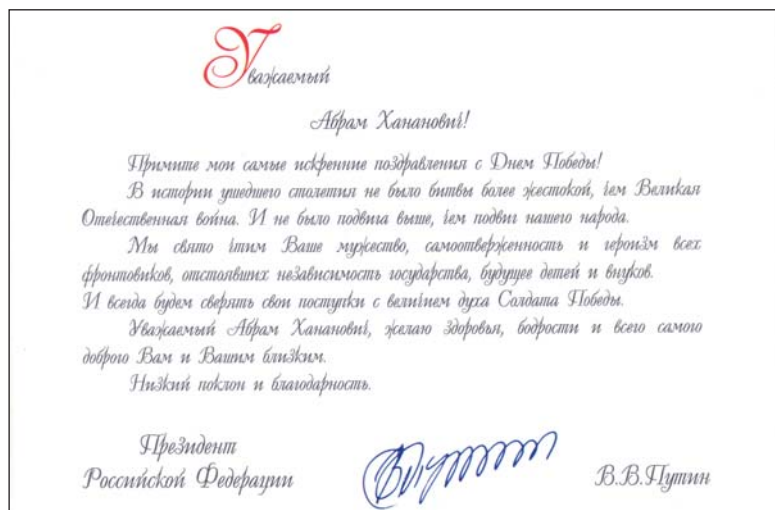 Уважаемый
Абрам Хананович!
Примите мои самые искренние поздравления с Днем Победы!
В истории ушедшего столетия не было битвы более жестокой, чем Великая
Отечественная война. И не было подвига выше, чем подвиг нашего народа.
Мы свято чтим Ваше мужество, самоотверженность и героизм всех
фронтовиков, отстоявших независимость государства, будущее детей и внуков.
И всегда будем сверять свои поступки с величием духа Солдата Победы.
Уважаемый Абрам Хананович, желаю здоровья, бодрости и всего самого
доброго Вам и Вашим близким.
Низкий поклон и благодарность.
Президент
Российской Федерации
В.В.Путин